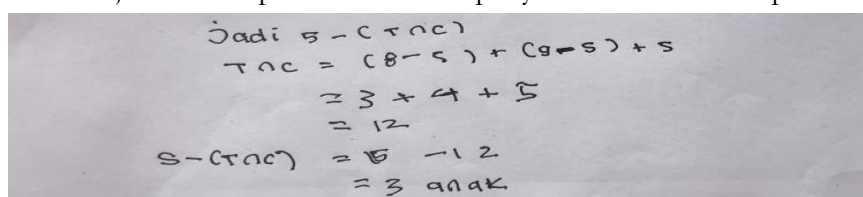 Jadi 5 - (T∩C)
T∩C = (8-5) + (9-5) + 5
= 3 + 4 + 5
= 12
S-(T∩C) = 15 - 12
= 3 anak